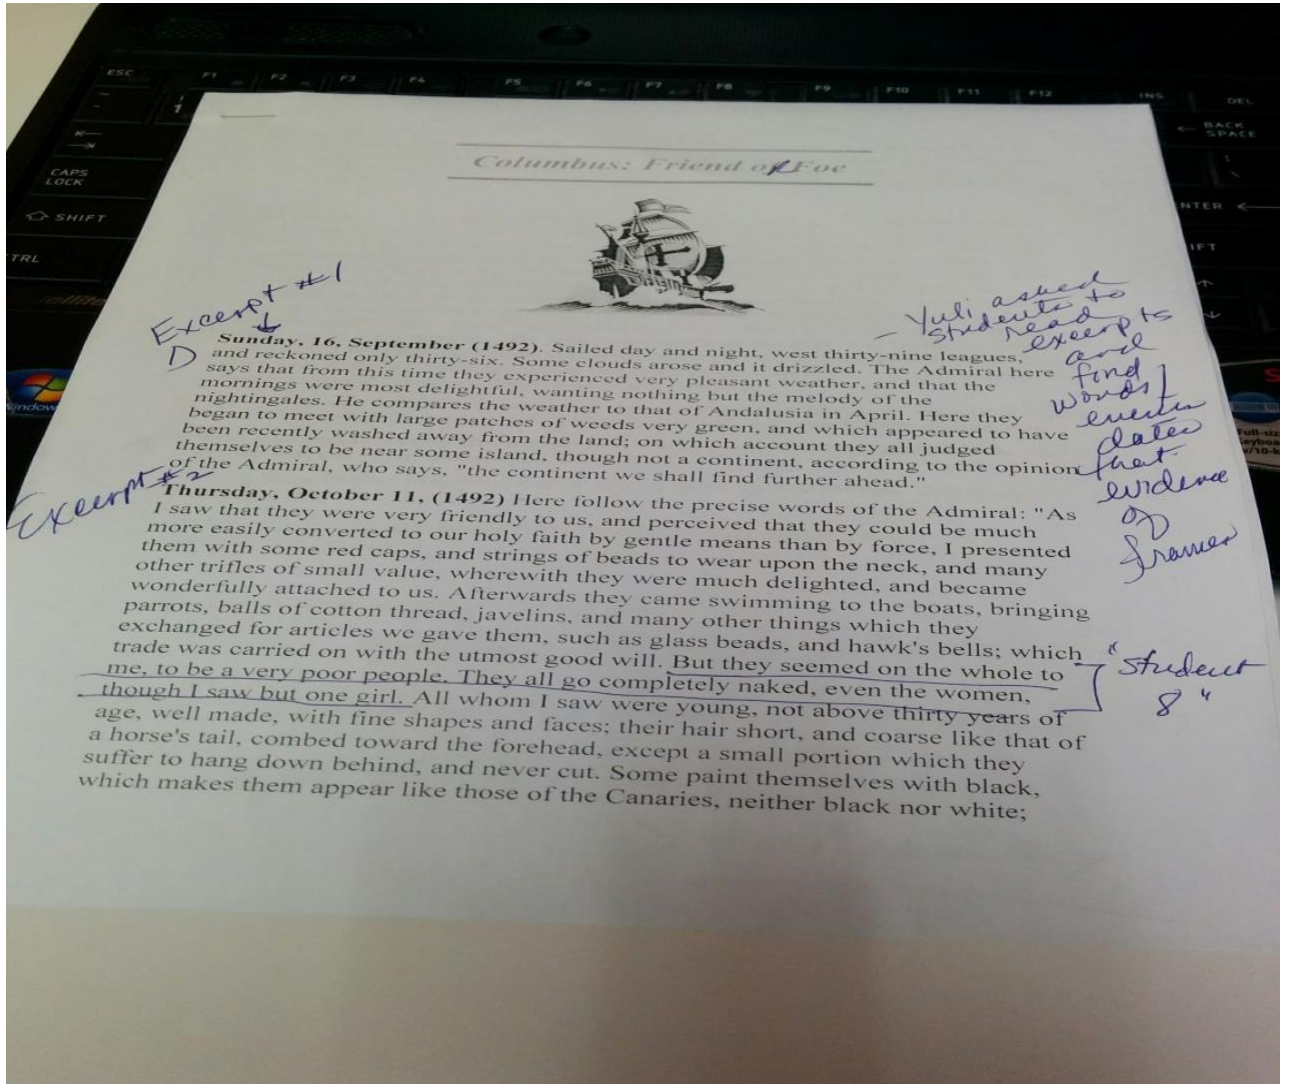 ESC F1 F2 F3 F4 F5 F6 F7 F8 F9 F10 F11 F12 INS DEL
BACK
SPACE
CAPS
LOCK
SHIFT
ENTER
TRL
IFT
Columbus: Friend or Foe
Excerpt #1
Sunday, 16, September (1492). Sailed day and night, west thirty-nine leagues,
and reckoned only thirty-six. Some clouds arose and it drizzled. The Admiral here
says that from this time they experienced very pleasant weather, and that the
mornings were most delightful, wanting nothing but the melody of the
nightingales. He compares the weather to that of Andalusia in April. Here they
began to meet with large patches of weeds very green, and which appeared to have
been recently washed away from the land; on which account they all judged
themselves to be near some island, though not a continent, according to the opinion
of the Admiral, who says, "the continent we shall find further ahead."
Excerpt #2
Thursday, October 11, (1492) Here follow the precise words of the Admiral: "As
I saw that they were very friendly to us, and perceived that they could be much
more easily converted to our holy faith by gentle means than by force, I presented
them with some red caps, and strings of beads to wear upon the neck, and many
other trifles of small value, wherewith they were much delighted, and became
wonderfully attached to us. Afterwards they came swimming to the boats, bringing
parrots, balls of cotton thread, javelins, and many other things which they
exchanged for articles we gave them, such as glass beads, and hawk's bells; which
trade was carried on with the utmost good will. But they seemed on the whole to
me, to be a very poor people. They all go completely naked, even the women,
though I saw but one girl. All whom I saw were young, not above thirty years of
age, well made, with fine shapes and faces; their hair short, and coarse like that of
a horse's tail, combed toward the forehead, except a small portion which they
suffer to hang down behind, and never cut. Some paint themselves with black,
which makes them appear like those of the Canaries, neither black nor white;
- Yuli asked
students to
read
excerpts
and
find
words
events
dates
that
evidence
of
frames
"Student
8"